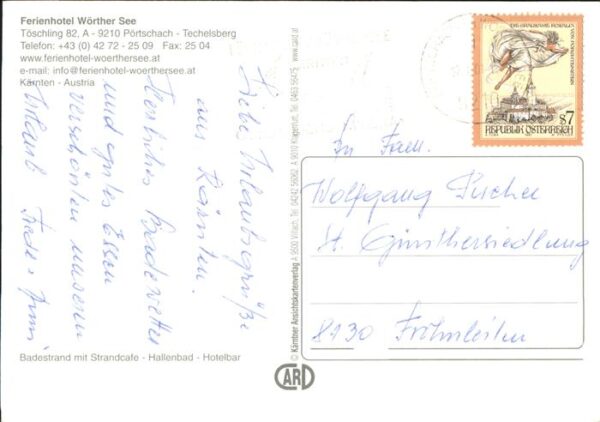 Ferienhotel Wörther See
Töschling 82, A - 9210 Pörtschach - Techelsberg
Telefon: +43 (0) 42 72 - 25 09 Fax: 25 04
www.ferienhotel-woerthersee.at
e-mail: info@ferienhotel-woerthersee.at
Kärnten - Austria
Liebe Urlaubsgrüße
aus Kärnten.
Herrliches Badewetter
und gutes Essen
verschönten unseren
Urlaub
Badestrand mit Strandcafe - Hallenbad - Hotelbar
© Kärntner Ansichtskartenverlag A 9500 Villach, Tel. 04242 56062, A 9010 Klagenfurt, Tel. 0463
www.card.at
CARD
S7
REPUBLIK ÖSTERREICH
An Fam.
Wolfgang Pucher
St. Günthersiedlung
8130 Frohnleiten